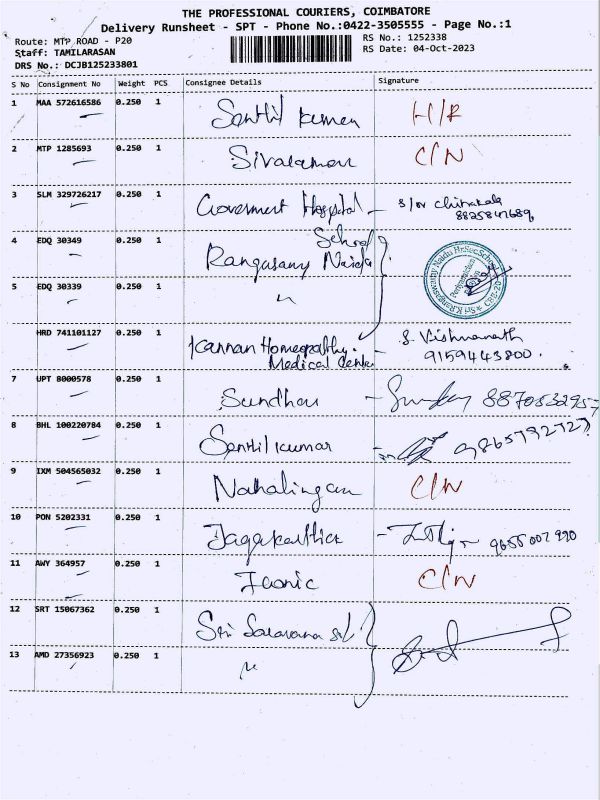 THE PROFESSIONAL COURIERS, COIMBATORE
Delivery Runsheet - SPT - Phone No.:0422-3505555 - Page No.:1
Route: MTP ROAD - P20
RS No.: 1252338
Staff: TAMILARASAN
RS Date: 04-Oct-2023
DRS No.: DCJB125233801
S No Consignment No Weight PCS Consignee Details Signature
1 MAA 572616586 0.250 1 Senthil kumar H/R
2 MTP 1285693 0.250 1 C/N
3 SLM 329726217 0.250 1 Government Hospital - S/W Chitrakala
8825841689
4 EDQ 30349 0.250 1 School
Rangasamy Naidu
5 EDQ 30339 0.250 1 "
HRD 741101127 0.250 1 Kannan Homeopathy Medical Center - S. Vishwanath
9159443800.
7 UPT 8000578 0.250 1 - 8870532957
8 BHL 100220784 0.250 1 Senthil kumar 9865792727
9 IXM 504565032 0.250 1 C/N
10 PON 5202331 0.250 1 - 9655002990
11 AWY 364957 0.250 1 C/N
12 SRT 15067362 0.250 1 Sri
13 AMD 27356923 0.250 1 "